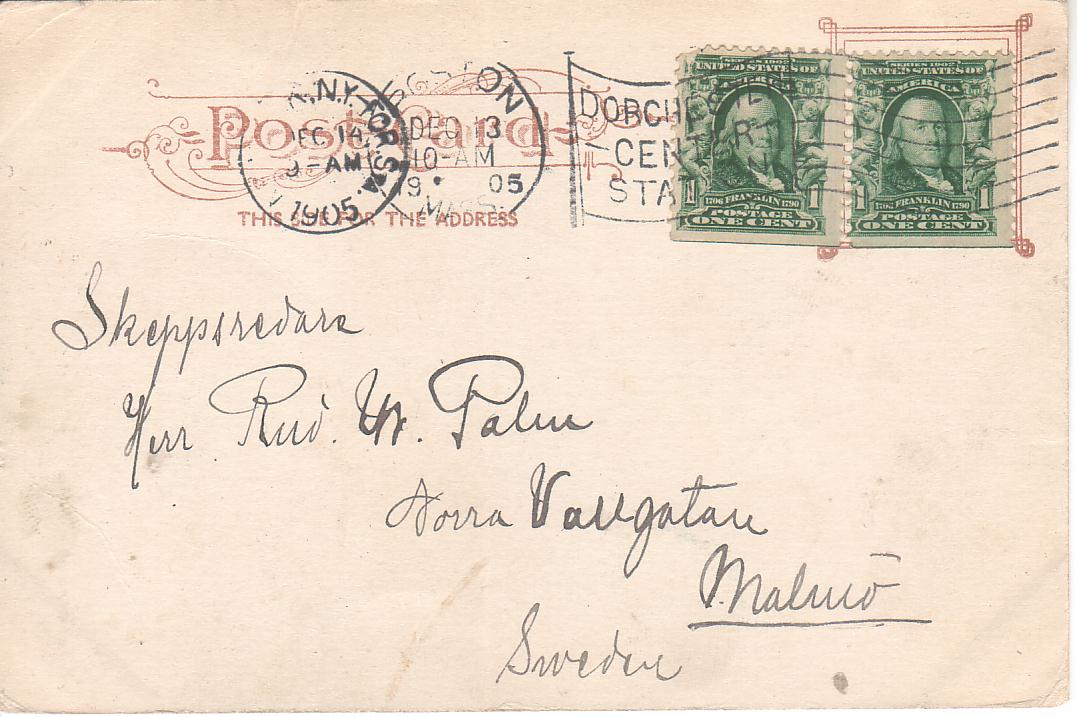 Post Card
THIS SIDE FOR THE ADDRESS
N.Y. FOR'GN
DEC 14
9-AM
1905
BOSTON
DEC 13
10-AM
05
MASS.
DORCHESTER
CENTER
STA
SERIES 1902
UNITED STATES OF
AMERICA
1 1
1706 FRANKLIN 1790
POSTAGE
ONE CENT
SERIES 1902
UNITED STATES OF
AMERICA
1 1
1706 FRANKLIN 1790
POSTAGE
ONE CENT
Skeppsredare
Herr Rud. W. Palm
Norra Vallgatan
Malmö
Sweden